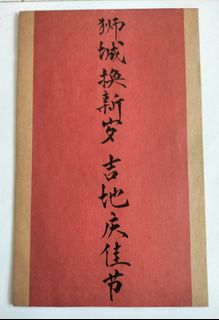 狮城换新岁吉地庆佳节